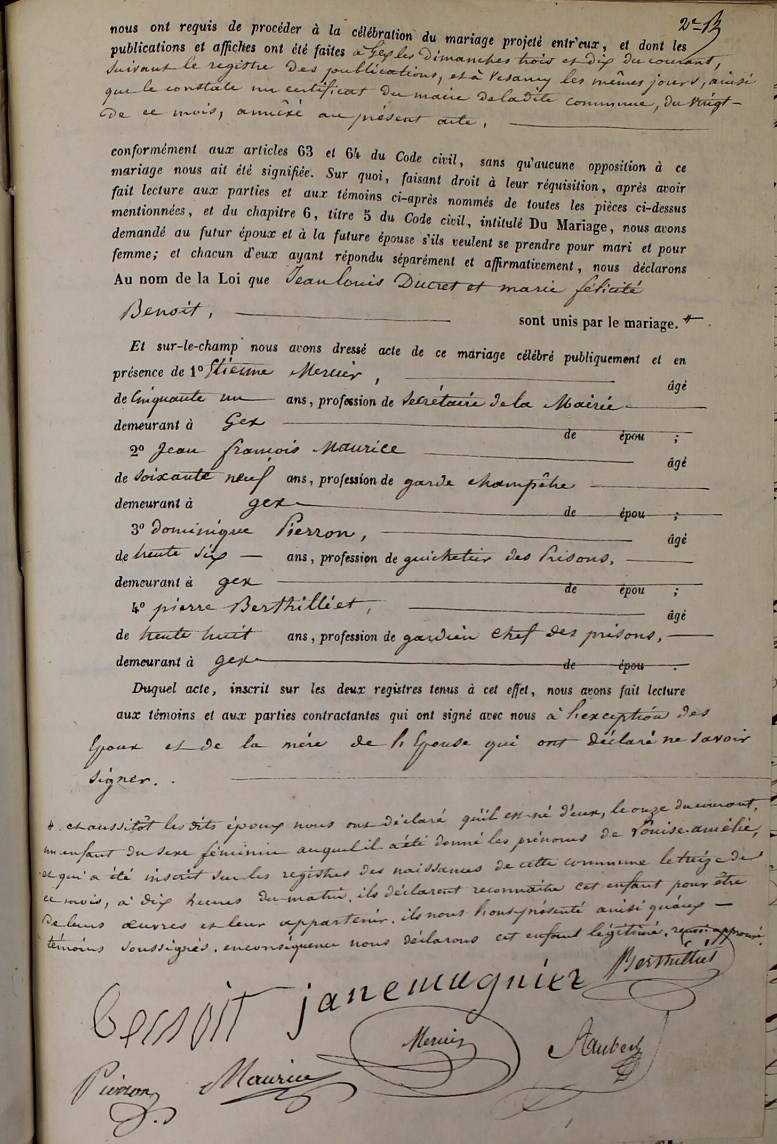 nous ont requis de procéder à la célébration du mariage projeté entr'eux, et dont les
publications et affiches ont été faites à Gex les dimanches trois et dix du courant,
suivant le registre des publications, et à Vesancy les mêmes jours, ainsi
que le constate un certificat du maire de la dite commune, du vingt
de ce mois, annéxé au présent acte.
conformément aux articles 63 et 64 du Code civil, sans qu'aucune opposition à ce
mariage nous ait été signifiée. Sur quoi, faisant droit à leur réquisition, après avoir
fait lecture aux parties et aux témoins ci-après nommés de toutes les pièces ci-dessus
mentionnées, et du chapitre 6, titre 5 du Code civil, intitulé Du Mariage, nous avons
demandé au futur époux et à la future épouse s'ils veulent se prendre pour mari et pour
femme; et chacun d'eux ayant répondu séparément et affirmativement, nous déclarons
Au nom de la Loi que Jean louis Ducret et marie félicité
Benoit, sont unis par le mariage. #
Et sur-le-champ nous avons dressé acte de ce mariage célébré publiquement et en
présence de 1° Etienne Mercier, âgé
de Cinquante un ans, profession de secrétaire de la Mairie
demeurant à Gex de épou ;
2° Jean françois Maurice âgé
de soixante neuf ans, profession de garde champêtre
demeurant à gex de épou ;
3° dominique Pierron, âgé
de trente six ans, profession de guichetier des Prisons,
demeurant à gex de épou ;
4° pierre Berthilliet, âgé
de trente huit ans, profession de gardien chef des prisons,
demeurant à gex de épou .
Duquel acte, inscrit sur les deux registres tenus à cet effet, nous avons fait lecture
aux témoins et aux parties contractantes qui ont signé avec nous à l'exception des
Epoux et de la mère de l'Epouse qui ont déclaré ne savoir
signer.
# et aussitôt les dits époux nous ont déclaré qu'il est né d'eux, le onze du courant,
un enfant du sexe féminin auquel il a été donné les prénoms de Louise amélie,
et qui a été inscrit sur les registres des naissances de cette commune le treize de
ce mois, à dix heures du matin, ils déclarent reconnaître cet enfant pour être
de leurs œuvres et leur appartenir. ils nous l'ont présenté ainsi qu'aux
témoins soussignés. en conséquence nous déclarons cet enfant légitimé. renvoi approuvé.
Berthilliet
Benoit janemugnier
Mercier
Pierron Maurice